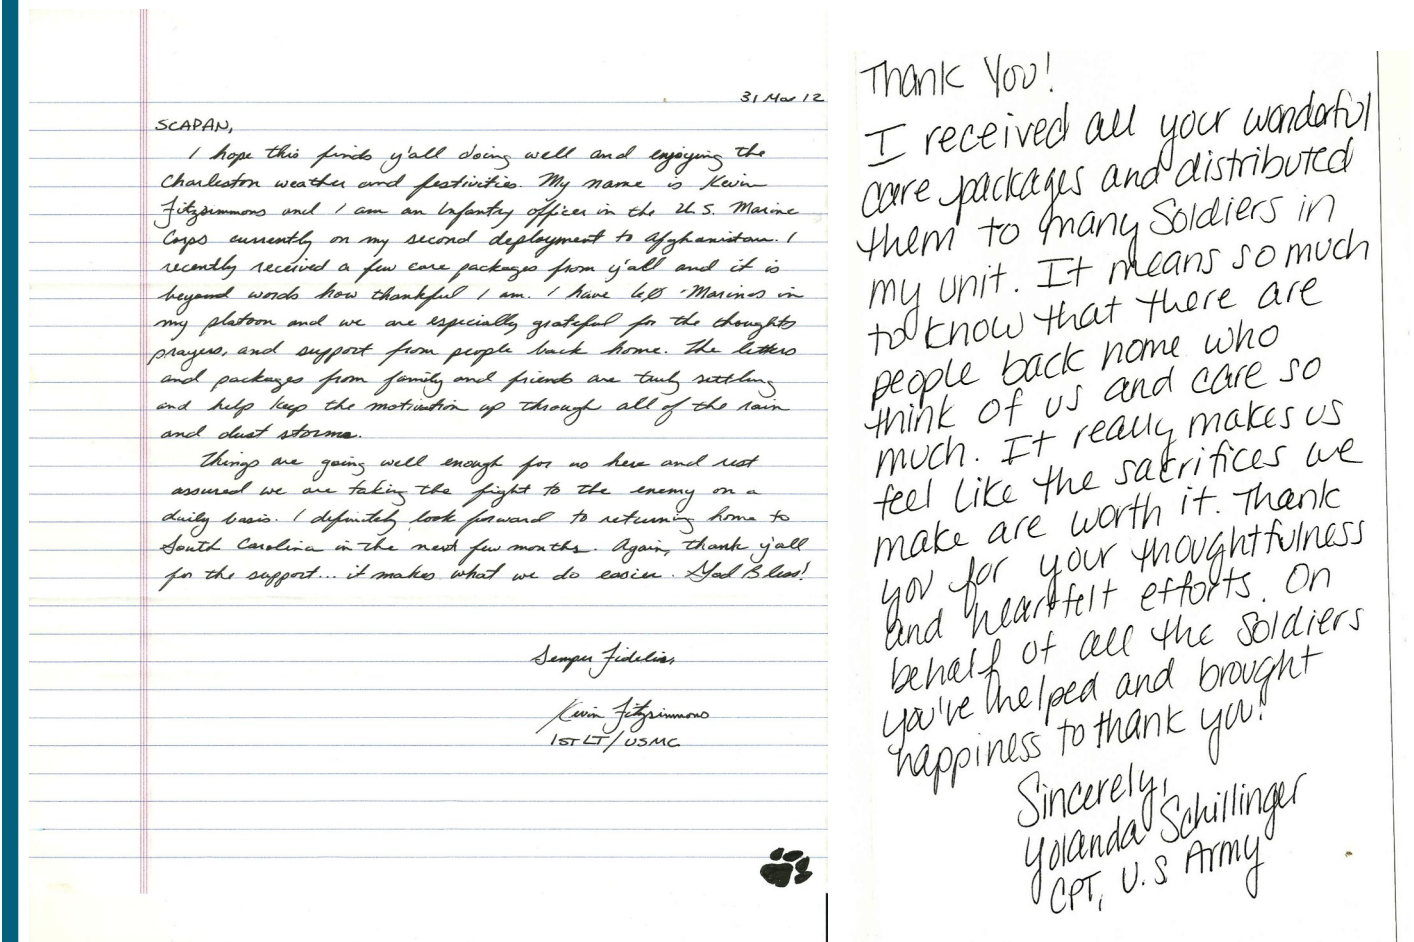 31 Mar 12
SCAPAN,
I hope this finds y'all doing well and enjoying the
Charleston weather and festivities. My name is Kevin
Fitzsimmons and I am an Infantry officer in the U.S. Marine
Corps currently on my second deployment to Afghanistan. I
recently received a few care packages from y'all and it is
beyond words how thankful I am. I have 60 Marines in
my platoon and we are especially grateful for the thoughts
prayers, and support from people back home. The letters
and packages from family and friends are truly settling
and help keep the motivation up through all of the rain
and dust storms.
Things are going well enough for us here and rest
assured we are taking the fight to the enemy on a
daily basis. I definitely look forward to returning home to
South Carolina in the next few months. Again, thank y'all
for the support... it makes what we do easier. God Bless!
Semper Fidelis,
Kevin Fitzsimmons
1ST LT/USMC
Thank You!
I received all your wonderful
care packages and distributed
them to many Soldiers in
my unit. It means so much
to know that there are
people back home who
think of us and care so
much. It really makes us
feel like the sacrifices we
make are worth it. Thank
you for your thoughtfulness
and heartfelt efforts. On
behalf of all the Soldiers
you've helped and brought
happiness to thank you!
Sincerely,
Yolanda Schillinger
CPT, U.S Army